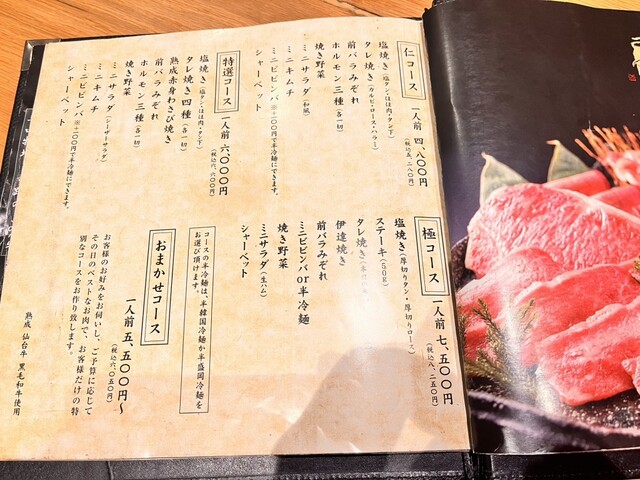 仁コース
一人前 四、八〇〇円
(税込五、二八〇円)
塩焼き(塩タン・ほほ肉・タン下)
タレ焼き(カルビ・ロース・ハラミ)
前バラみぞれ
ホルモン三種(各一切)
焼き野菜
ミニサラダ(和風)
ミニキムチ
ミニビビンバ※+一〇〇円で半冷麺にできます。
シャーベット
特選コース
一人前 六、〇〇〇円
(税込六、六〇〇円)
塩焼き(塩タン・ほほ肉・タン下)
タレ焼き四種(各一切)
熟成赤身わさび焼き
前バラみぞれ
ホルモン三種(各一切)
焼き野菜
ミニサラダ(シーザーサラダ)
ミニキムチ
ミニビビンバ※+一〇〇円で半冷麺にできます。
シャーベット
極コース
一人前 七、五〇〇円
(税込八、二五〇円)
塩焼き(厚切りタン・厚切りロース)
ステーキ(50g)
タレ焼き
伊達焼き
前バラみぞれ
ミニビビンバor半冷麺
焼き野菜
ミニサラダ(生ハム)
シャーベット
コースの半冷麺は、半韓国冷麺か半盛岡冷麺を
お選び頂けます。
おまかせコース
一人前 五、五〇〇円〜
(税込 六、〇五〇円)
お客様のお好みをお伺いし、ご予算に応じて
その日のベストなお肉で、お客様だけの特
別なコースをお作り致します。
熟成 仙台牛 黒毛和牛使用